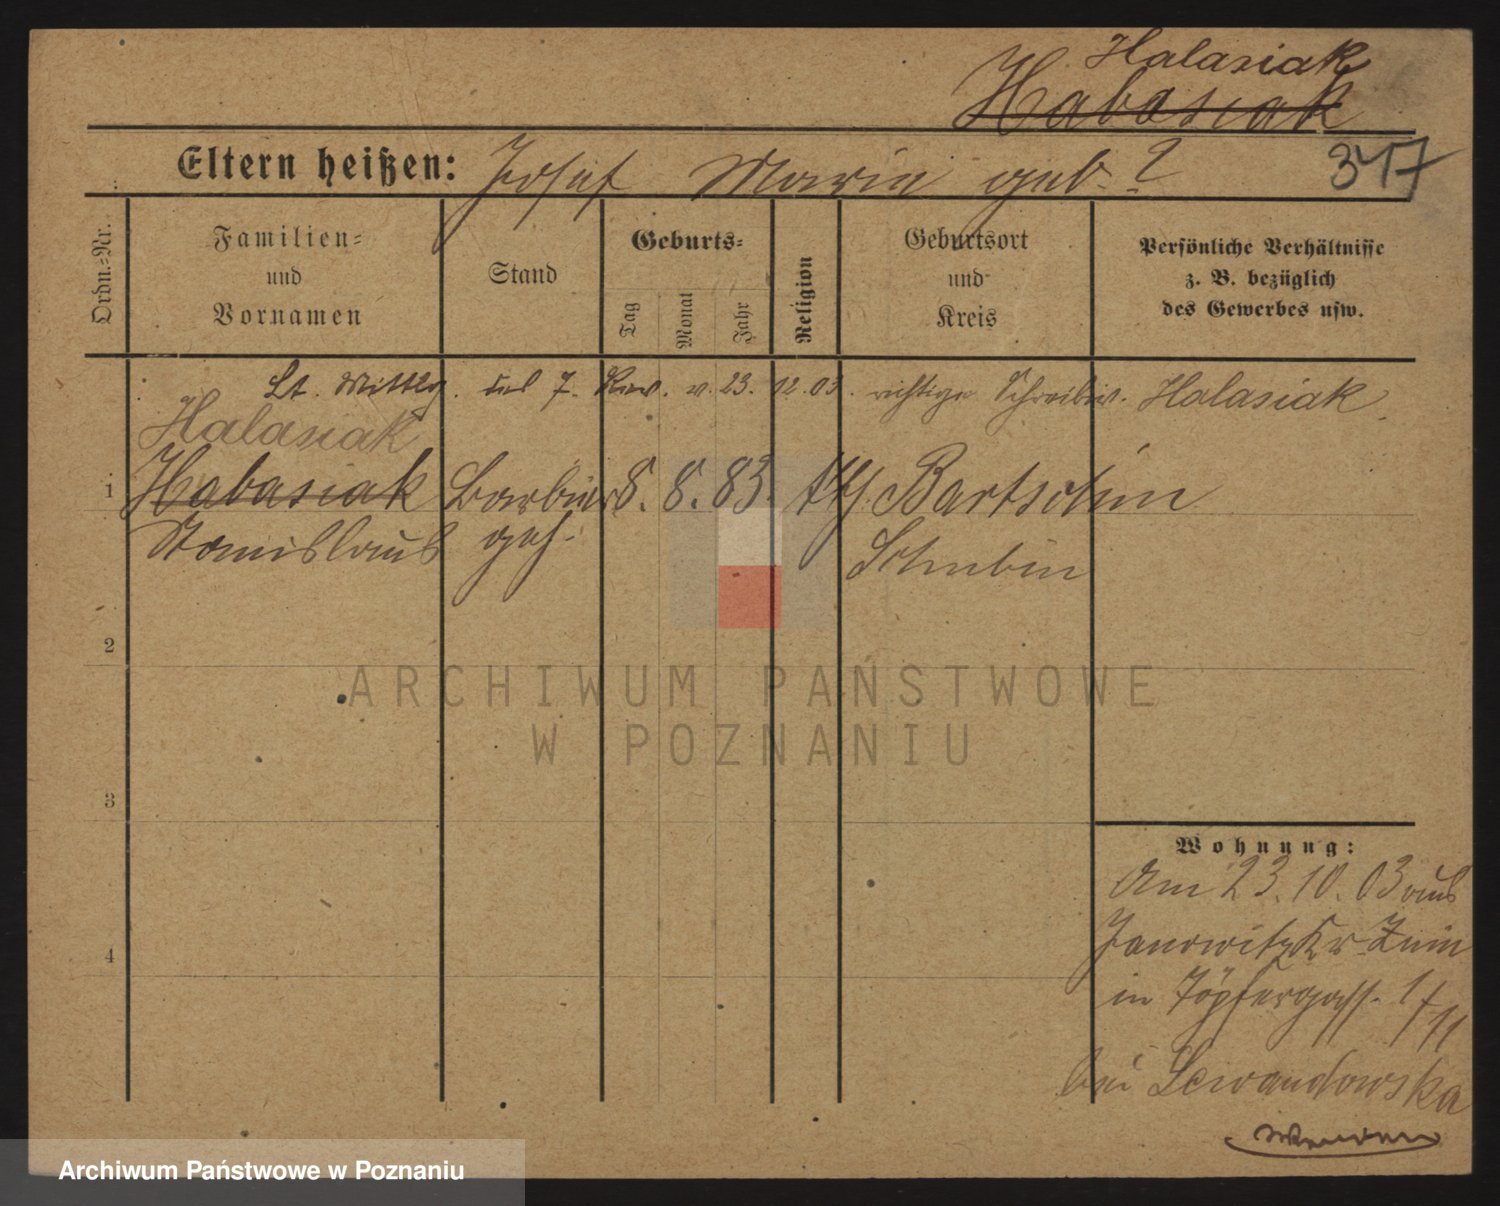 Halasiak
Habasiak
Eltern heißen: Josef Maria geb. ?
347
Ordn.=Nr.
Familien=
und
Vornamen
Stand
Geburts=
Tag
Monat
Jahr
Religion
Geburtsort
und
Kreis
Persönliche Verhältnisse
z. B. bezüglich
des Gewerbes usw.
Lt. Mittlg. des 7. Rev. v. 23. 12. 03. richtige Schreibw. Halasiak.
Halasiak
1 Habasiak Barbier 8. 8. 83. kth. Bartschin
Stanislaus geh. Schubin
2
3
4
Wohnung:
Am 23. 10. 03 aus
Janowitz Kr Znin
in Töpfergass. 1/II
bei Lewandowska
ARCHIWUM PAŃSTWOWE
W POZNANIU
Archiwum Państwowe w Poznaniu